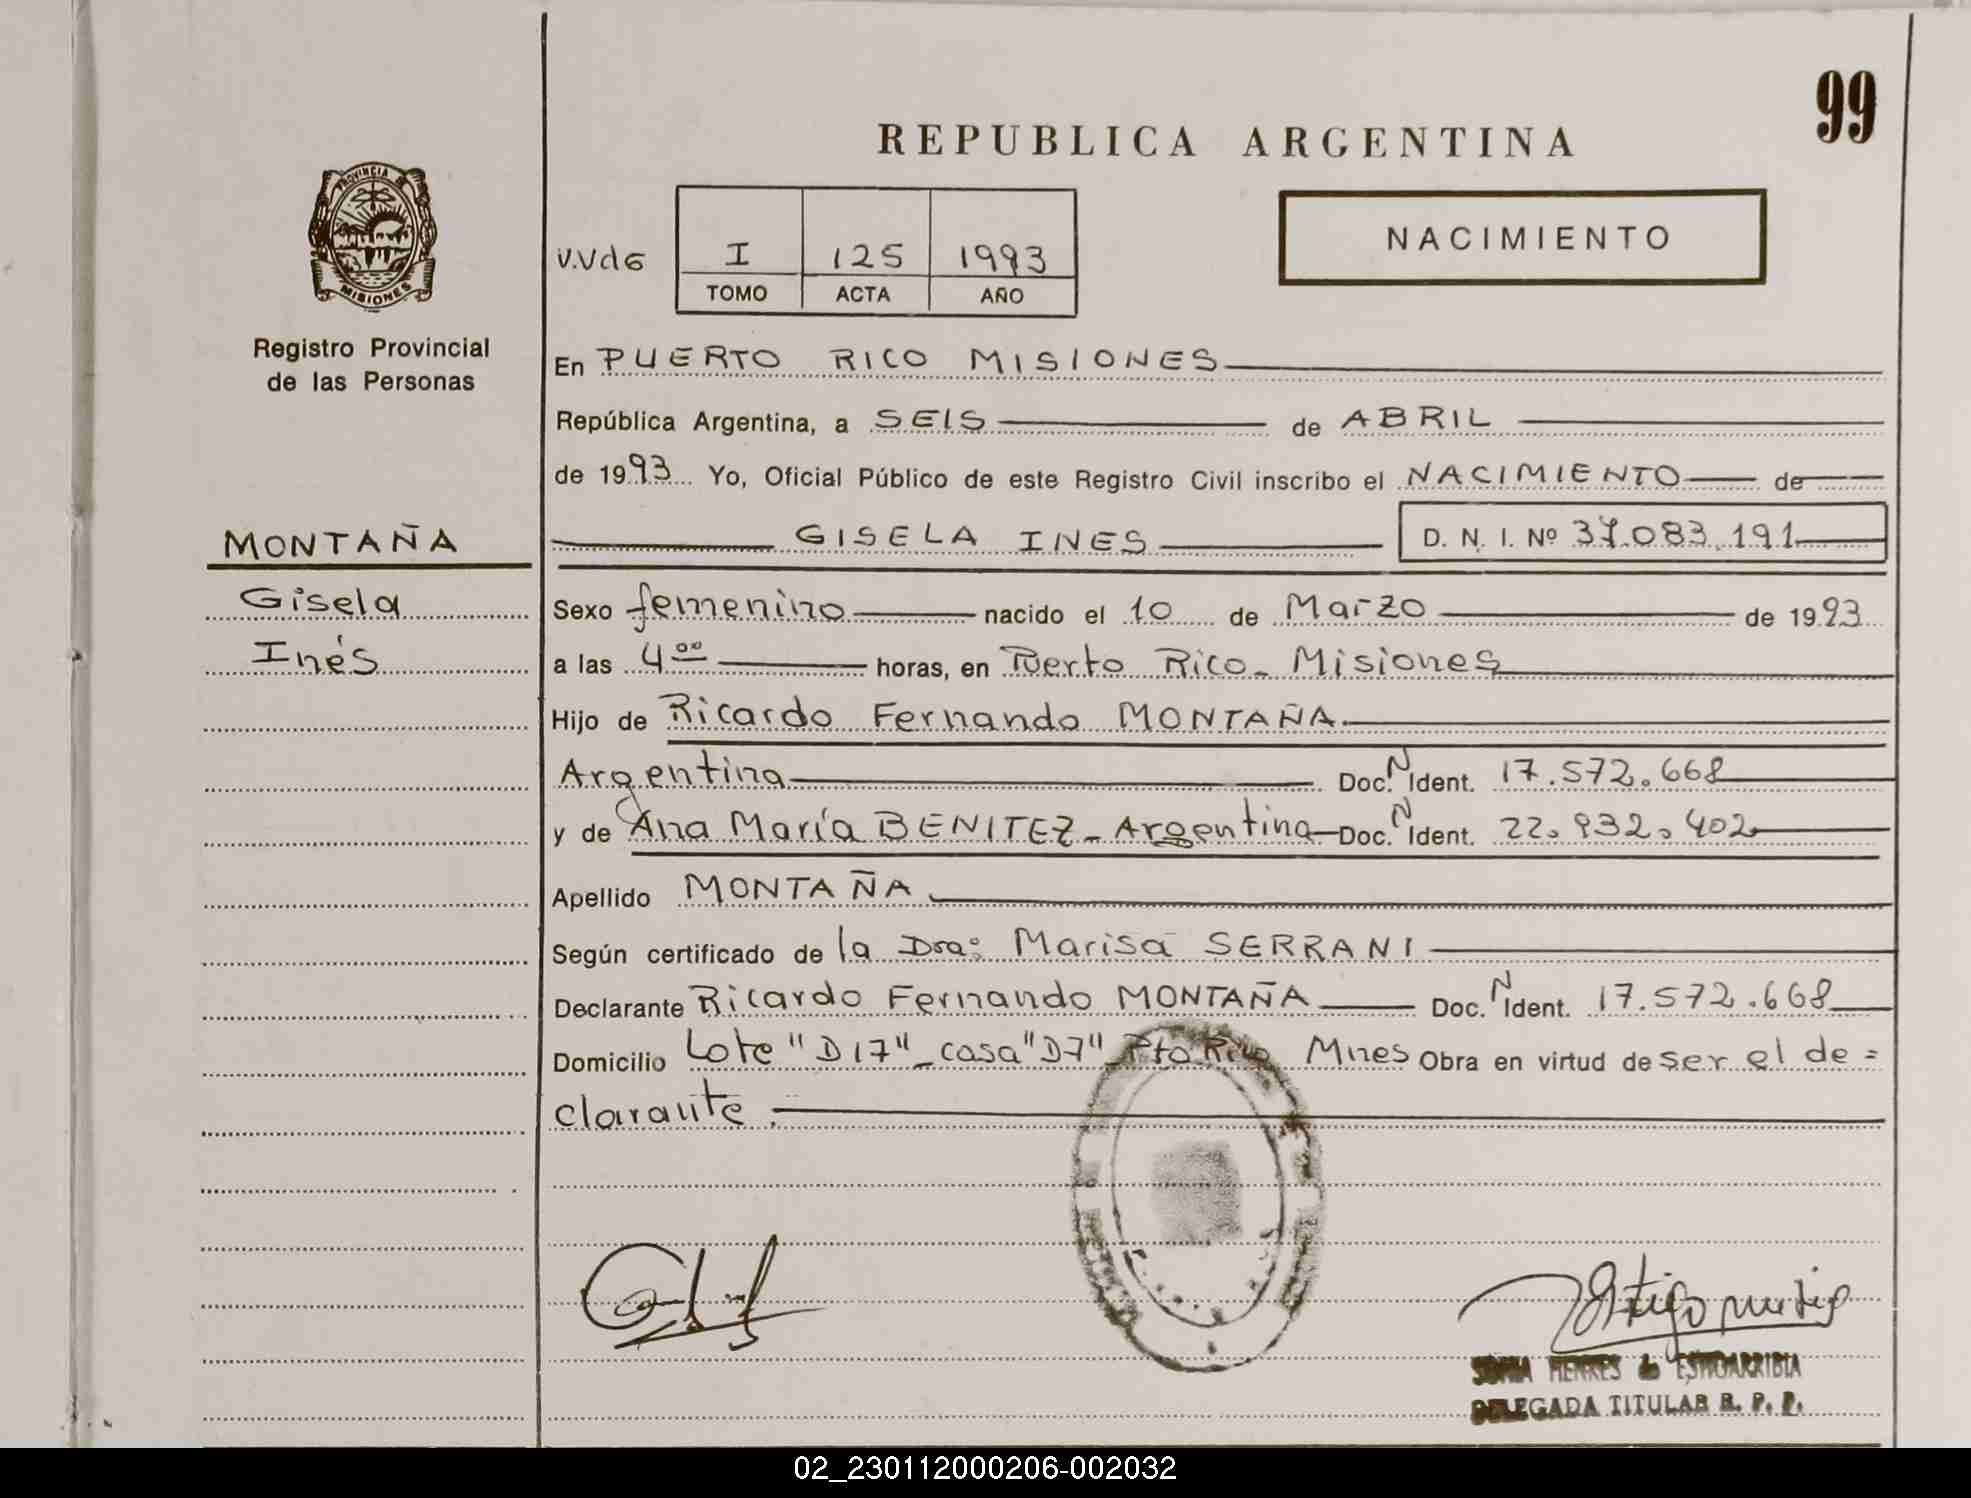 99
REPUBLICA ARGENTINA
PROVINCIA DE
MISIONES
Registro Provincial
de las Personas
NACIMIENTO
V.Vd6
I 125 1993
TOMO ACTA AÑO
En PUERTO RICO MISIONES
República Argentina, a SEIS de ABRIL
de 1993 Yo, Oficial Público de este Registro Civil inscribo el NACIMIENTO de
MONTAÑA
GISELA INES D. N. I. Nº 37.083.191
Gisela
Inés
Sexo femenino nacido el 10 de Marzo de 1993
a las 4 00 horas, en Puerto Rico - Misiones
Hijo de Ricardo Fernando MONTAÑA
Argentina Doc. N Ident. 17.572.668
y de Ana María BENITEZ - Argentina Doc. N Ident. 22.932.402
Apellido MONTAÑA
Según certificado de la Dra: Marisa SERRANI
Declarante Ricardo Fernando MONTAÑA Doc. N Ident. 17.572.668
Domicilio Lote "D17" - casa "D7" Pto Rico Mnes Obra en virtud de ser el de=
clarante.
DELEGADA TITULAR R. P. P.
02_230112000206-002032